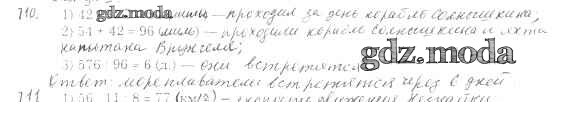 710. 1) 42 gdz.moda (миль) – проходил за день корабль Солнышкина,
2) 54 + 42 = 96 (миль) – проходили корабль Солнышкина и яхта
капитана Врунгеля;
3) 576 : 96 = 6 (д.) – они встретятся gdz.moda
Ответ: мореплаватели встретятся через 6 дней
711 1) 56 11 : 8 = 77 (км/ч) –